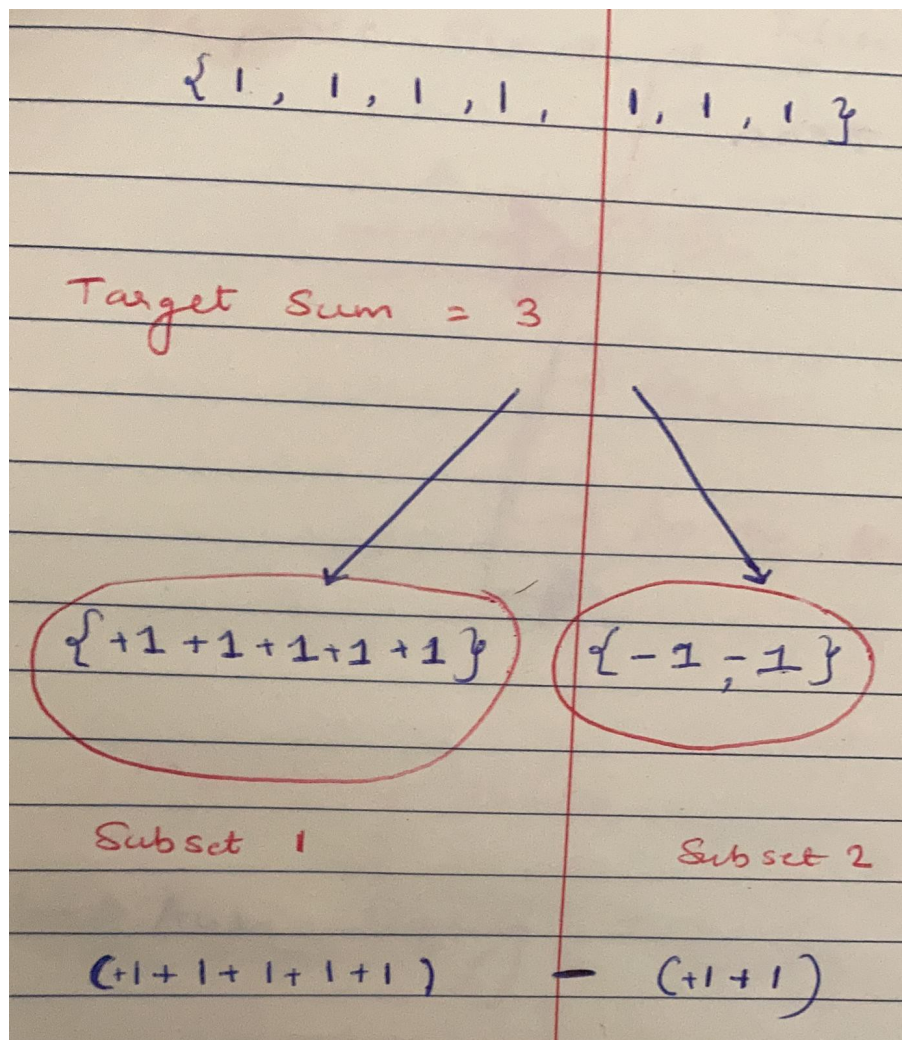 {1, 1, 1, 1, 1, 1, 1}
Target Sum = 3
{+1 +1 +1 +1 +1} {-1, -1}
Subset 1 Subset 2
(+1 + 1 + 1 + 1 + 1) - (+1 + 1)